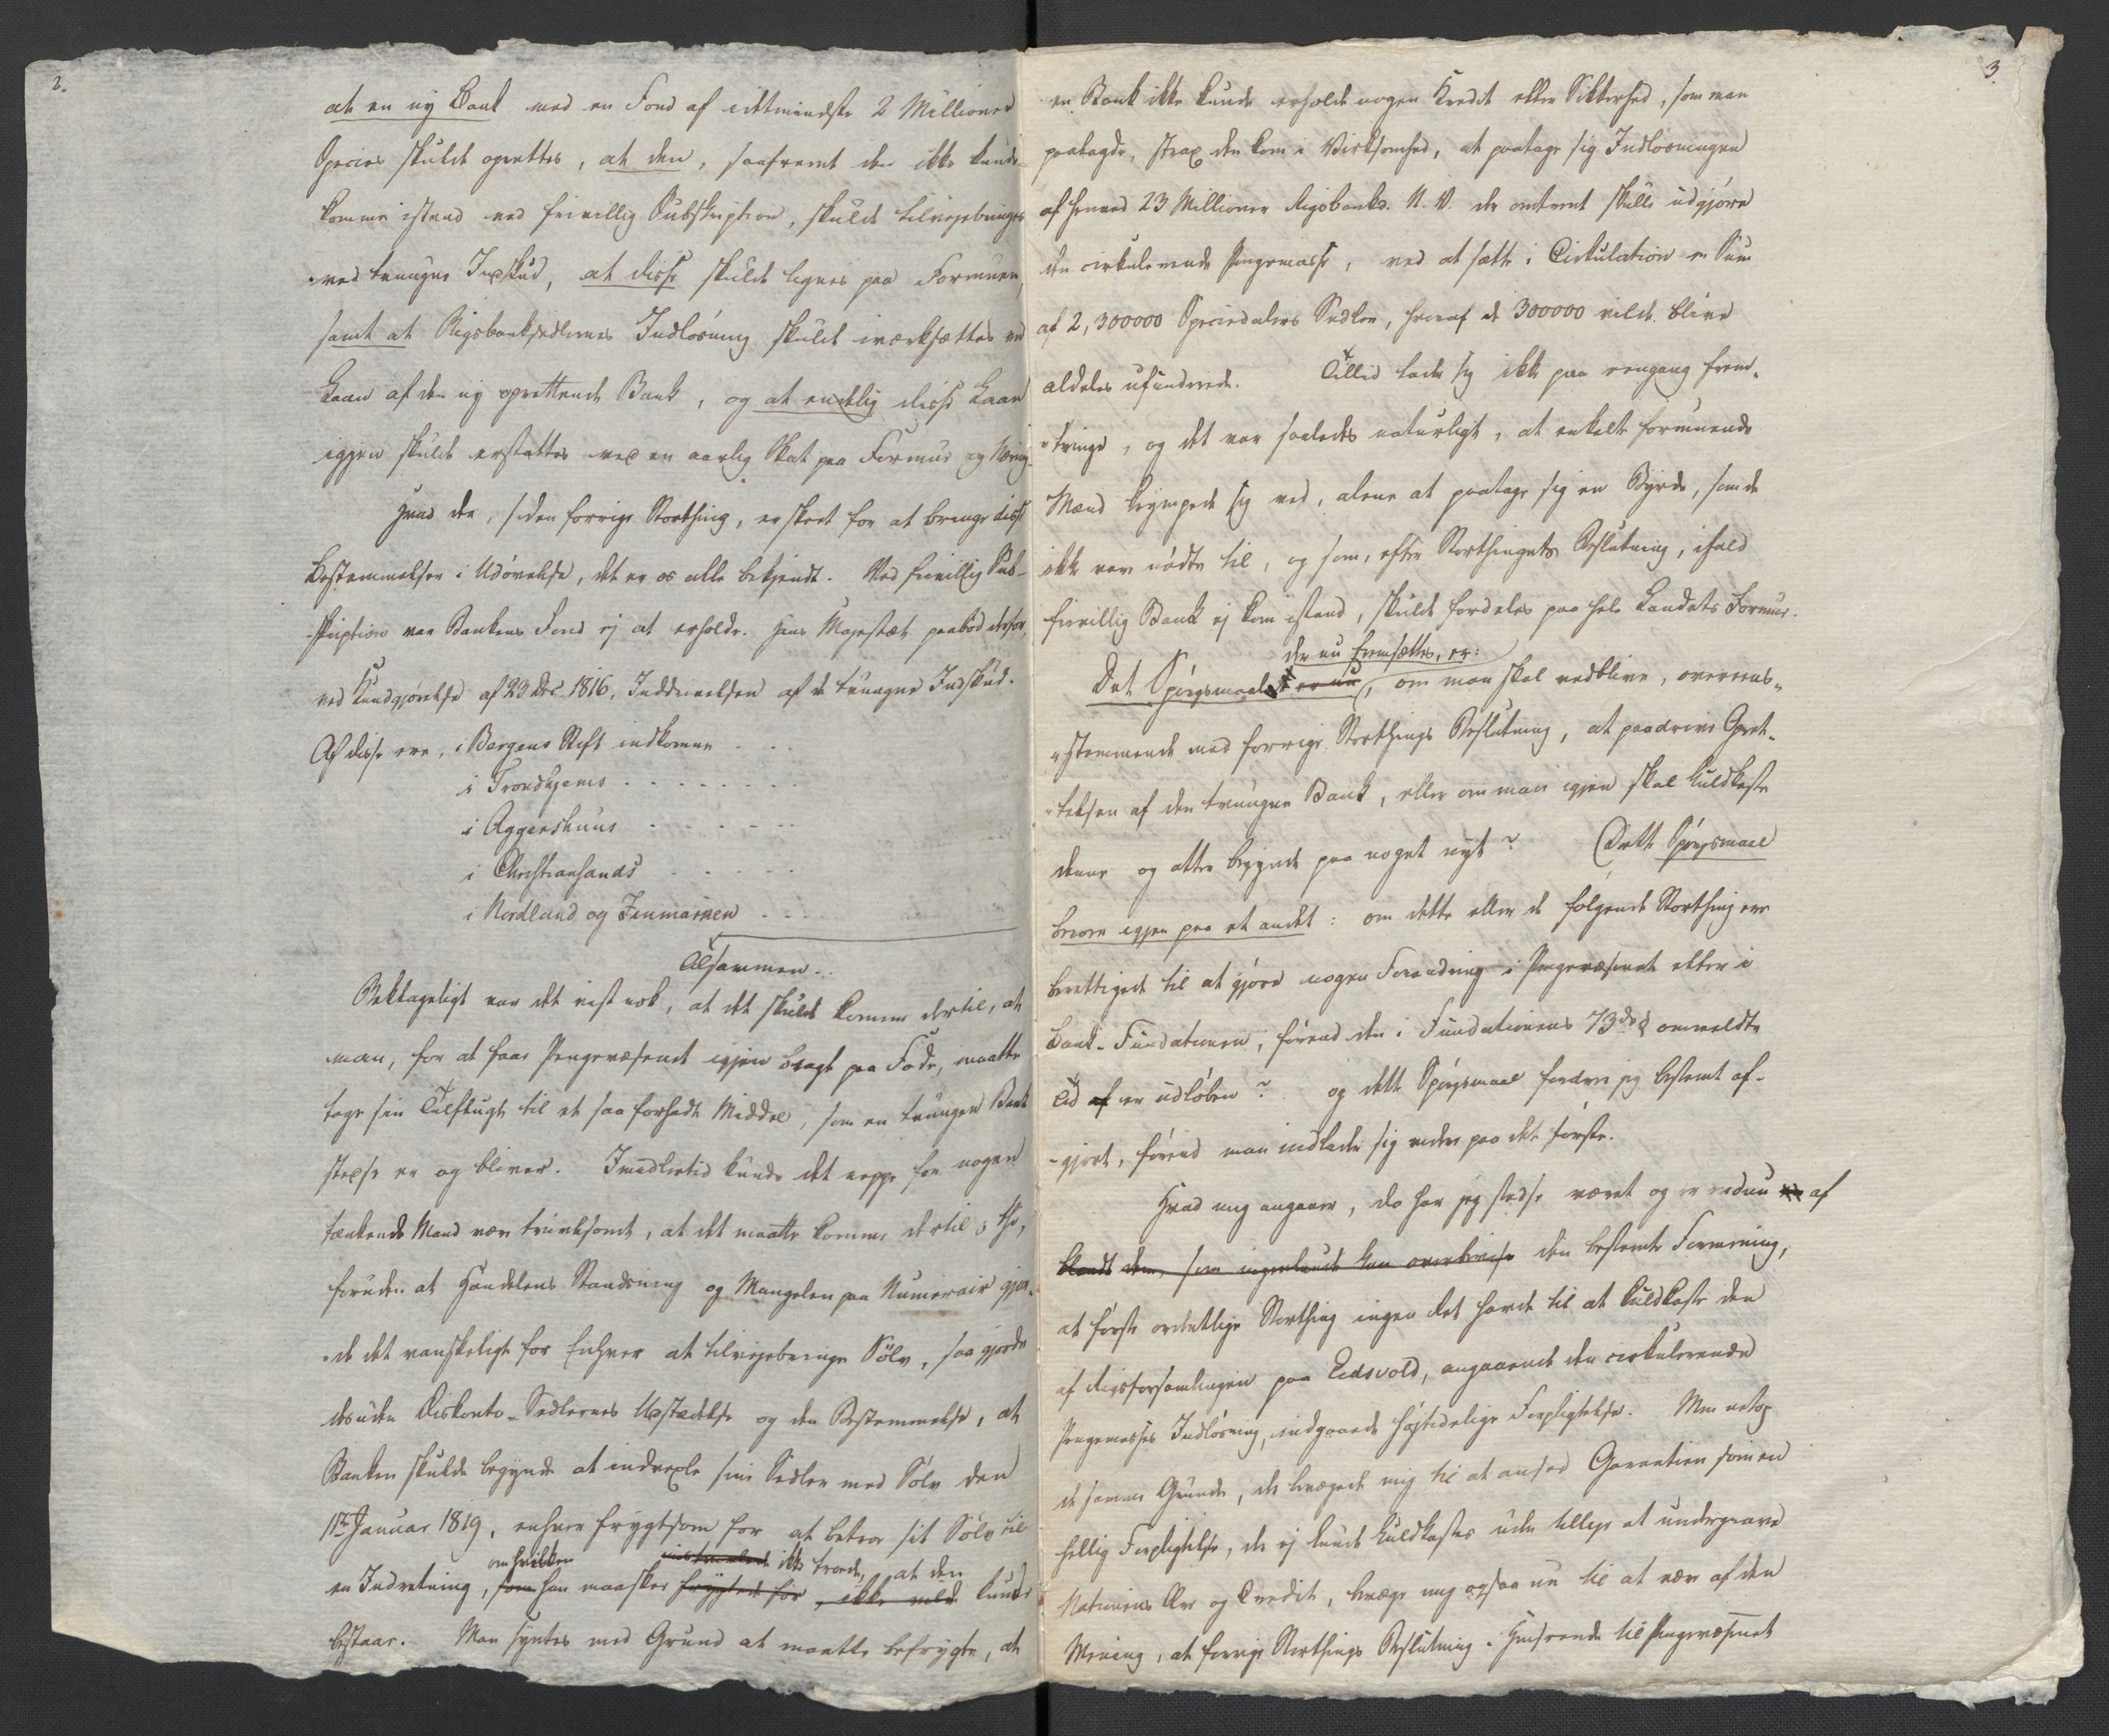 2.
at en ny Bank med en Fond af idetmindste 2 Millioner
Species skulde oprettes, at den, saafremt den ikke kunde
komme istand ved frivillig Subskription, skulde tilvejebringes
ved tvungne Indskud, at disse skulde lignes paa Formuen,
samt at Rigsbanksedlernes Indløsning skulde iværksættes ved
Laan af den ny oprettende Bank, og at endelig disse Laan
igjen skulde erstattes ved en aarlig Skat paa Formue og Næring.
Hvad der, siden forrige Storthing, er skeet for at bringe disse
Bestemmelser i Udøvelse, det er os alle bekjendt. Ved frivillig Sub-
skription var Bankens Fond ej at erholde. Hans Majestæt paabød derfor,
ved Kundgjørelse af 23 Dec 1816, Inddrivelsen af de tvungne Indskud.
Af disse ere, i Bergens Stift indkomne . . .
i Trondhjems . . . . . . . .
i Aggershuus . . . . . .
i Christiansands . . . . .
i Nordland og Finmarken . . .
Tilsammen..
Beklageligt var det vist nok, at det skulde komme dertil, at
man, for at faae Pengevæsenet igjen bragt paa Fode, maatte
tage sin Tilflugt til et saa forhadt Middel, som en tvungen Bank
stedse er og bliver. Imidlertid kunde det neppe for nogen
tænkende Mand være tvivlsomt, at det maatte komme dertil; thi,
foruden at Handelens Standsning og Mangelen paa Numerair gjor-
de det vanskeligt for Enhver at tilvejebringe Sølv, saa gjorde
desuden Diskonto-Sedlernes Udstædelse og den Bestemmelse, at
Banken skulde begynde at indvexle sine Sedler med Sølv den
1ste Januar 1819, enhver frygtsom for at betroe sit Sølv til
om hvilken ikke troede, at den
en Indretning, som han maaskee frygtede for, ikke vilde kunde
bestaae. Man syntes med Grund at maatte befrygte, at
3
en Bank ikke kunde erholde nogen Kredit eller Sikkerhed, som man
paalagde, strax den kom i Virksomhed, at paatage sig Indløsningen
af henved 23 Millioner Rigsbankd. N. V. der omtrent skulle udgjøre
den cirkulerende Pengemasse, ved at sætte i Cirkulation en Sum
af 2,300000 Speciedalers Sedler, hvoraf de 300000 vilde blive
aldeles ufunderede. Tillid lader sig ikke paa eengang frem-
tvinge, og det var saaledes naturligt, at enkelte formuende
Mænd krympede sig ved, alene at paatage sig en Byrde, som de
ikke vare nødte til, og som, efter Storthingets Beslutning, ifald
frivillig Bank ej kom istand, skulde fordeles paa hele Landets Formue.
der nu fremsættes, er:
Det Spørgsmaal er nu, om man skal vedblive, overeens-
stemmende med forrige Storthings Beslutning, at paadrive Opret-
telsen af den tvungne Bank, eller om man igjen skal kuldkaste
denne og atter begynde paa noget nyt? (Dette Spørgsmaal
beroer igjen paa et andet: om dette eller de følgende Storthing ere
berettigede til at gjøre nogen Forandring i Pengevæsenet eller i
Bank-Fundationen, førend den i Fundationens 73de § ommeldte
Tid af er udløben? og dette Spørgsmaal fordrer jeg bestemt af-
gjort, førend man indlader sig videre paa det første.
Hvad mig angaaer, da har jeg stedse været og er endnu af
blandt dem, som ingenlunde kan overbevise den bestemte Formening,
at første ordentlige Storthing ingen Ret havde til at kuldkaste den
af Rigsforsamlingen paa Eidsvold, angaaende den cirkulerende
Pengemasses Indløsning, indgaaede højtidelige Forpligtelse. Men netop
de samme Grunde, der bevægede mig til at ansee Garantien som en
hellig Forpligtelse, der ej kunde kuldkastes uden tillige at undergrave
Nationens Ære og Credit, bevæge mig ogsaa nu til at være af den
Mening, at forrige Storthings Beslutning i Henseende til Pengevæsenet